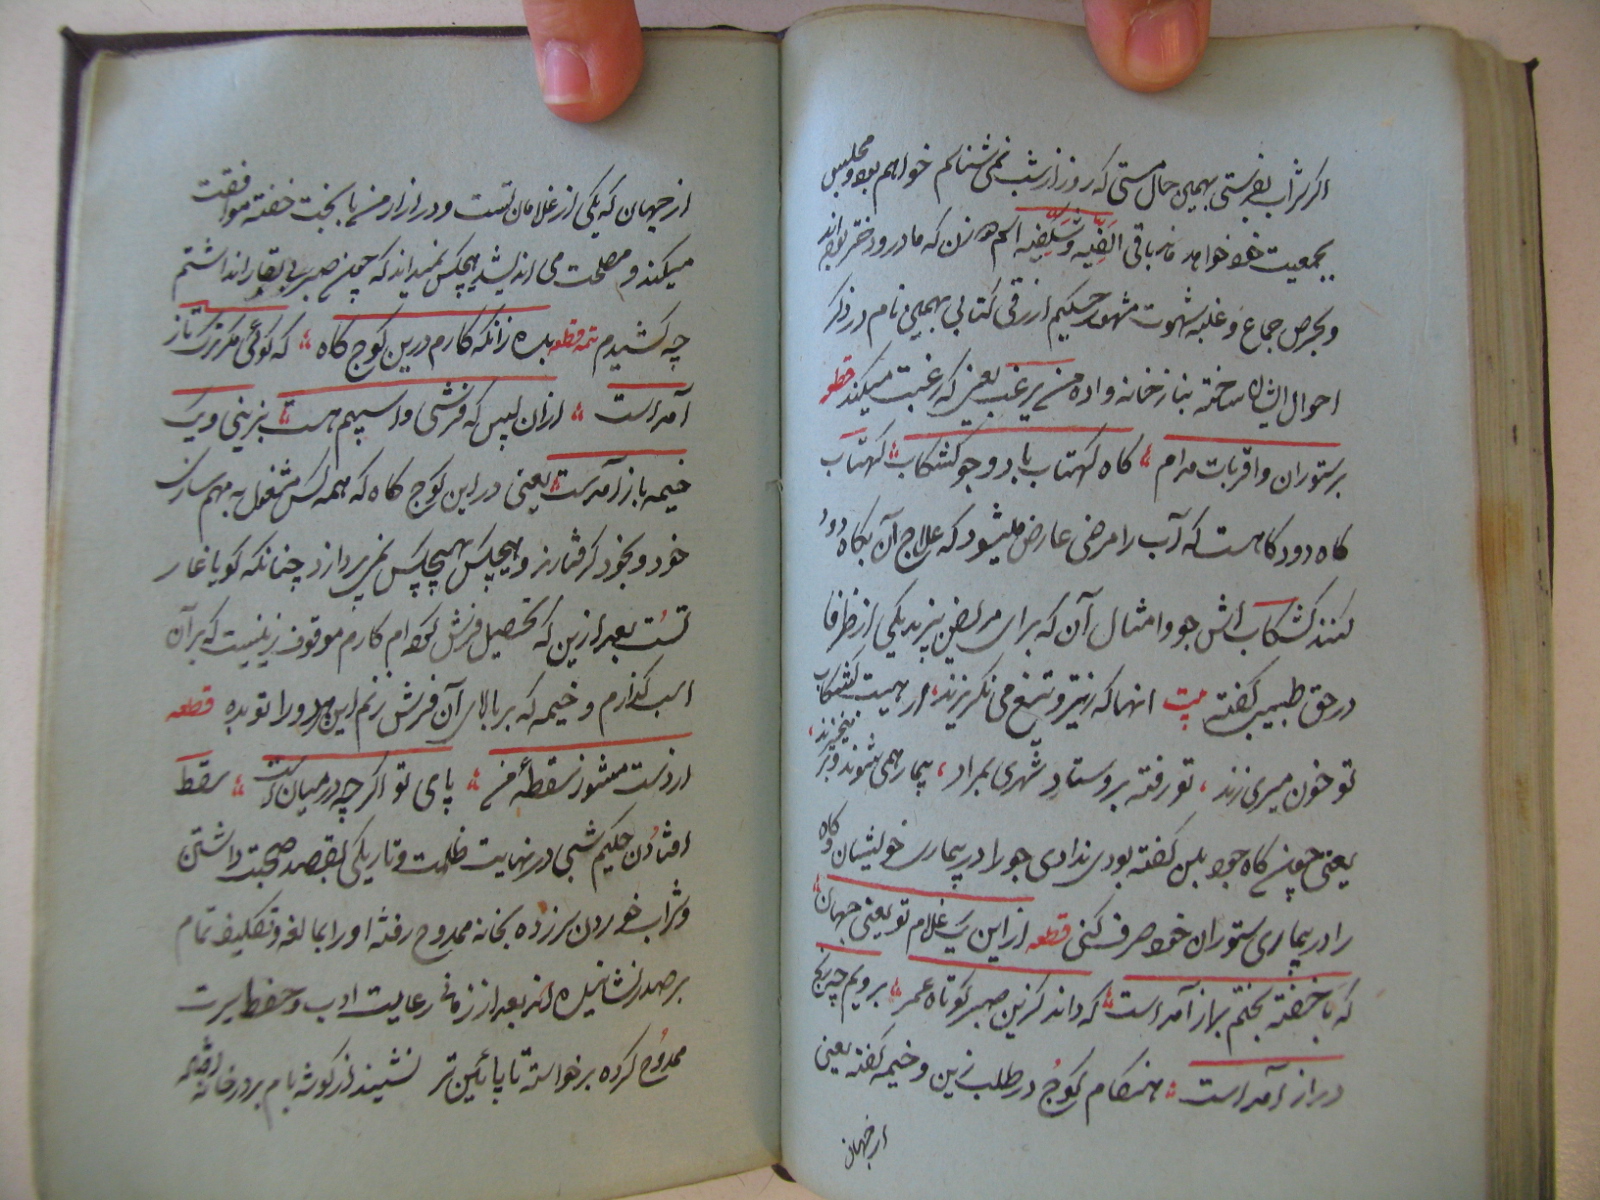 اگر شراب بفرستی بهمین حال مستی که روز از شب نمی‌شناسم خواهم بود و مجلس
بجمعیت خود خواهد ماند باقی الفیه و شلفیه اسم دو زن که مادر و دختر بوده‌اند
و بحرص جماع و غلبه شهوت مشهور حکیم ازرقی کتابی بهمین نام در ذکر
احوال ایشان ساخته بناز خانه و اده من یرغب یعنی که رغبت میکند قطعه
بر ستوران و اقربات مدام ؛ کاه کهتاب باد و جو کشکاب ؛ کهتاب
کاه دود کاهست که آب را مرضی عارض میشود که علاج آن بکاه دود
کنند کشکاب آش جو و امثال آن که برای مریض پزند یکی از ظرفا
در حق طبیب گفته بیت انها که ز تیر و تیغ می نگریزند ، از هیبت کشکاب
تو خون میریزند ، تو رفته بروستا و شهری بمراد ، بیمار همی شوند و بر نیخیزند ،
یعنی چون کاه جو بمن گفته بودی ندادی جو را در بیماری خویشان و کاه
را در بیماری ستوران خود صرف کنی قطعه از این یک غلام تو یعنی جهان ؛
که با خفته بختم براز آمد است ؛ که داند کزین صبر کوتاه عمر ؛ برویم چه رنج
دراز آمد است ؛ هنگام کوچ در طلب زین و خیمه گفته یعنی
از جهان
از جهان که یکی از غلامان تست و در ازار من با بخت خفته موافقت
میکند و مصلحت می اندیشد هیچکس نمیداند که چون صبر بی بقا را نداشتم
چه کشیدم تمه قطعه بده زانکه کارم درین کوچ گاه ؛ که گوئی مگر ترک تاز
آمد است ؛ ازان پس که فرشی و اسپیم هست ؛ بزینی و یک
خیمه باز آمدست ؛ یعنی در این کوچ گاه که همه کس مشغول به مهم سازی
خود و بخود گرفتارند و هیچکس بهیچکس نمی پردازد چنانکه گویا غار
تست بعد ازین که تحصیل فرش کرده‌ام کارم موقوف زینیست که بر آن
اسب گذارم و خیمه که بر بالای آن فرش زنم این هر دو را تو بده قطعه
از دست مشو ز سقطه من ؛ پای تو اگر چه در میان است ؛ سقط
افتادن حکیم شبی در نهایت ظلمت و تاریکی بقصد صحبت داشتن
و شراب خوردن سرزده بخانه ممدوح رفته او را بمبالغه و تکلیف تمام
بر صدر نشانیده اند بعد از زمانی رعایت ادب و حفظ سیرت
ممدوح کرده برخواسته تا پائین تر نشیند از گوشه بام بر در خانه